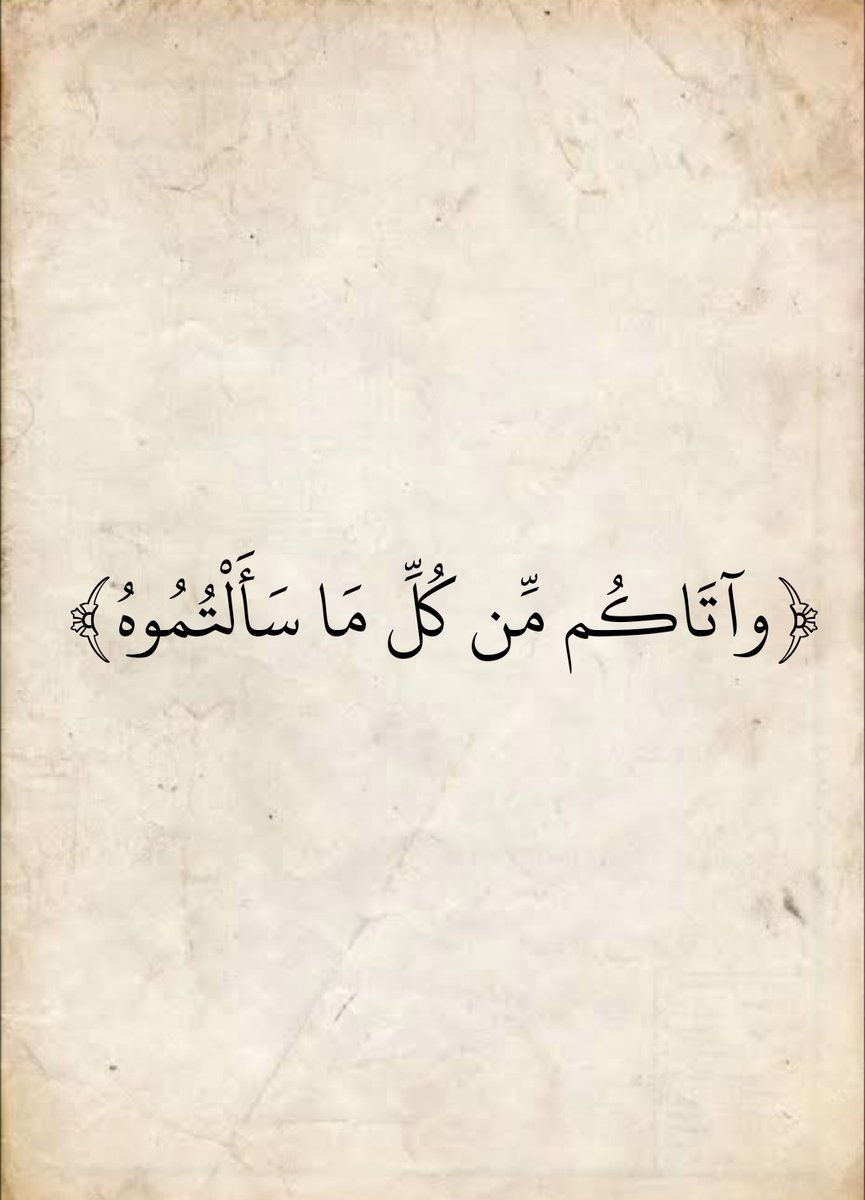 ﴿وآتَاكُم مِّن كُلِّ مَا سَأَلْتُمُوهُ﴾